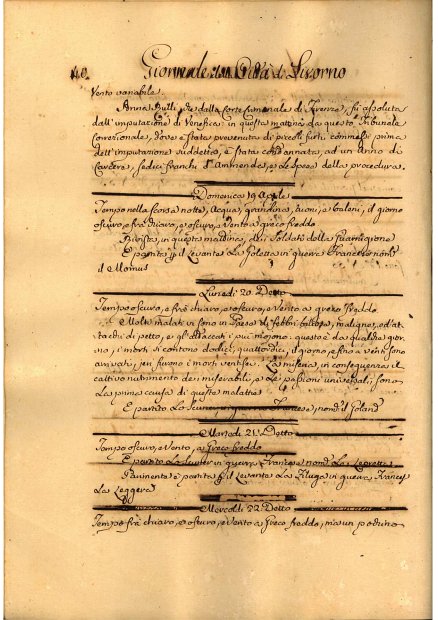 40. Giornale della Città di Livorno
Vento variabile.
Anna Bulli, che dalla Corte Criminale di Firenze, fù assoluta
dall'imputazione di Veneficio in questa mattina da questo Tribunale
Correzionale, dove è stata prevenuta di piccoli furti commessi prima
dell'imputazione suddetta, è stata condannata, ad un Anno di
Carcere, sedici franchi d'Ammenda, e le spese della procedura.
Domenica 19 Aprile
Tempo nella scorsa notte, Acqua, grandine, tuoni, e baleni, il giorno
oscuro, e frà chiaro, e oscuro, e Vento a greco freddo
Rivista, in questa mattina, dei Soldati della Guarnigione
E partita p il Levante la Goletta in guerra Francese nom
il Momus
Lunedì 20 Detto
Tempo oscuro, e frà chiaro, e oscuro, e Vento a greco freddo
Molti malati vi sono in Paese di febbri biliose, maligne, ed at
tacchi di petto, e gl'attaccati i più muojono: questo è da qualche gior
no, i morti si contono dodici, quattordici, il giorno, e fino a venti sono
arrivati, jeri furono i morti ventisei. La miseria, in conseguenza il
cattivo nutrimento dei miserabili, e le passioni universali, sono
la prima causa di queste malattie
E partito lo Francese, nom il Joland
Martedì 21 Detto
Tempo oscuro, e Vento, a Greco freddo
E partito in guerra, Francese nom La
Parimente è partita p il Levante la in guerra, Frances
La Leggera
Mercoldì 22 Detto
Tempo frà chiaro, e oscuro, e Vento a Greco freddo, ma un pochino